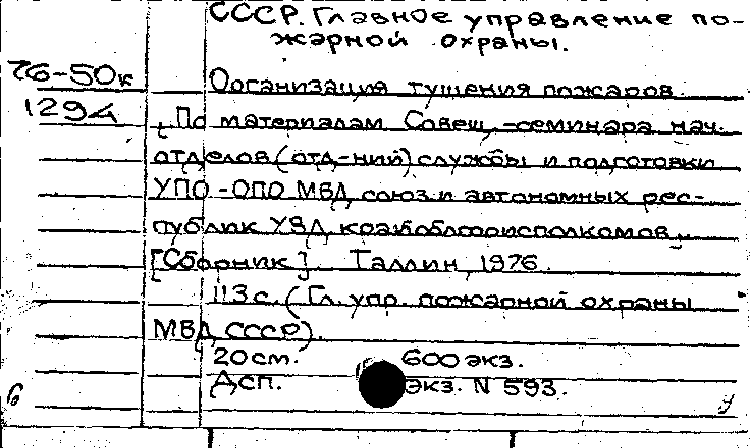 СССР. Главное управление по-
жарной охраны.
76-50к
1294
Организация тушения пожаров.
По материалам Совещ.-семинара нач.
отделов (отд-ний) службы и подготовки
УПО-ОПО МВД союз. и автономных рес-
публик УВД край облгорисполкомов,
[Сборник]. Таллин, 1976.
113 с. (Гл. упр. пожарной охраны
МВД СССР).
20 см. 600 экз.
Дсп. экз. N 593.